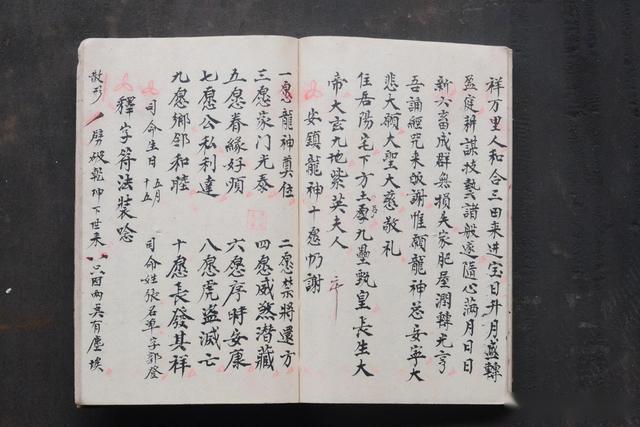 祥万里人和合三田来进宝日升月盛轉
盈庭耕謀技藝諸般遂隨心满月日日
新六畜成群無損失家肥屋潤轉元亨
吾誦經咒来皈謝惟願龍神茖安寧大
悲大願大聖大慈敬礼
住居陽宅下方主應元九壘甄皇長生大
帝大玄九地紫英夫人
安鎮龍神十愿叩謝
一愿龍神奠位 二愿禁將還方
三愿家门光泰 四愿威煞潜藏
五愿眷緣好順 六愿序時安康
七愿公私利達 八愿虎盗滅亡
九愿鄉邻和睦 十愿長發其祥
司命生日 五月十五 司命姓張名單字郭登
釋字符法裝唸
散形 劈破乾坤下世来 只因两 有塵埃